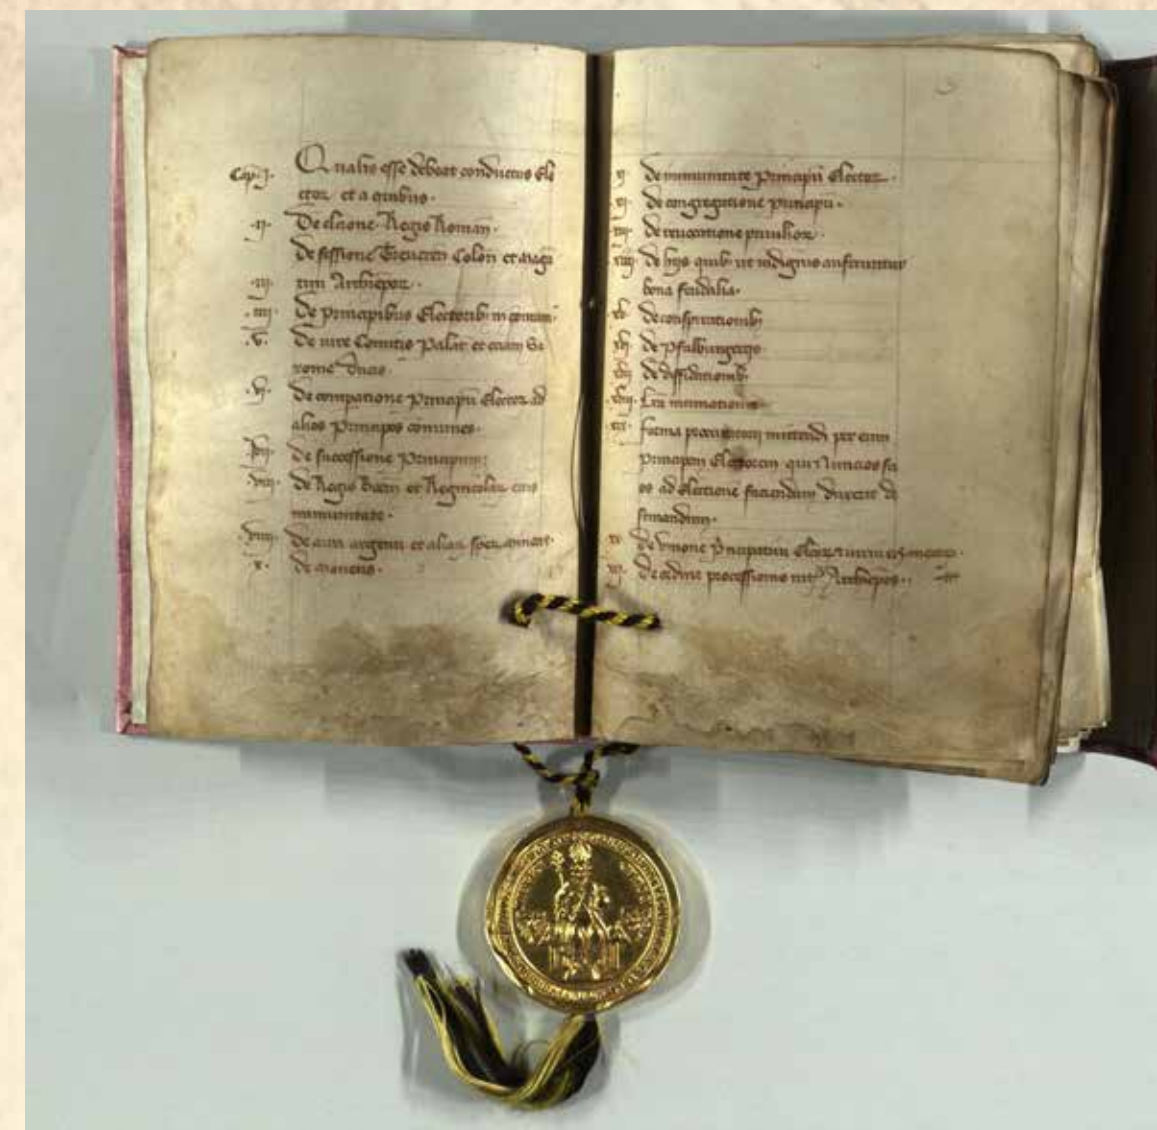 Cap. j. Qualis esse debeat conductus Ele
ctor. et a quibus.
.ij. De elcione Regis Roman.
de sessione Treueren Colon et magu
.iij. tini Archiepor.
.iiij. De Principibus Electorib in comuni
.v. De iure Comitis Palat et eciam Sa
xonie Ducis.
.vj. De compacione Principu Elector ad
alios Principes comunes.
.vij. De successione Principum.
.viij. De Regis Boem et Regnicolar eius
immunitate.
.viiij. De auri argenti et aliar spec
.x. De monetis.
xj. De immunitate Principu Elector.
xij. De congregacione Principu.
xiij. De reuocacione priuilior.
xiiij. De hijs quib ut indignis auferuntur
bona feudalia.
xv. De conspiracionib
xvj. De Pfalburgeris
xvij. De diffidacionib.
xviij. Lra intimacionis
xix. forma procuratorij mittendi per eum
Principem Electorem qui nuncios su
os ad Electione faciendam duxerit de
stinandum.
xx. De Unione Principatuu Elector
xxj. De ordine processionis int Archiepos.